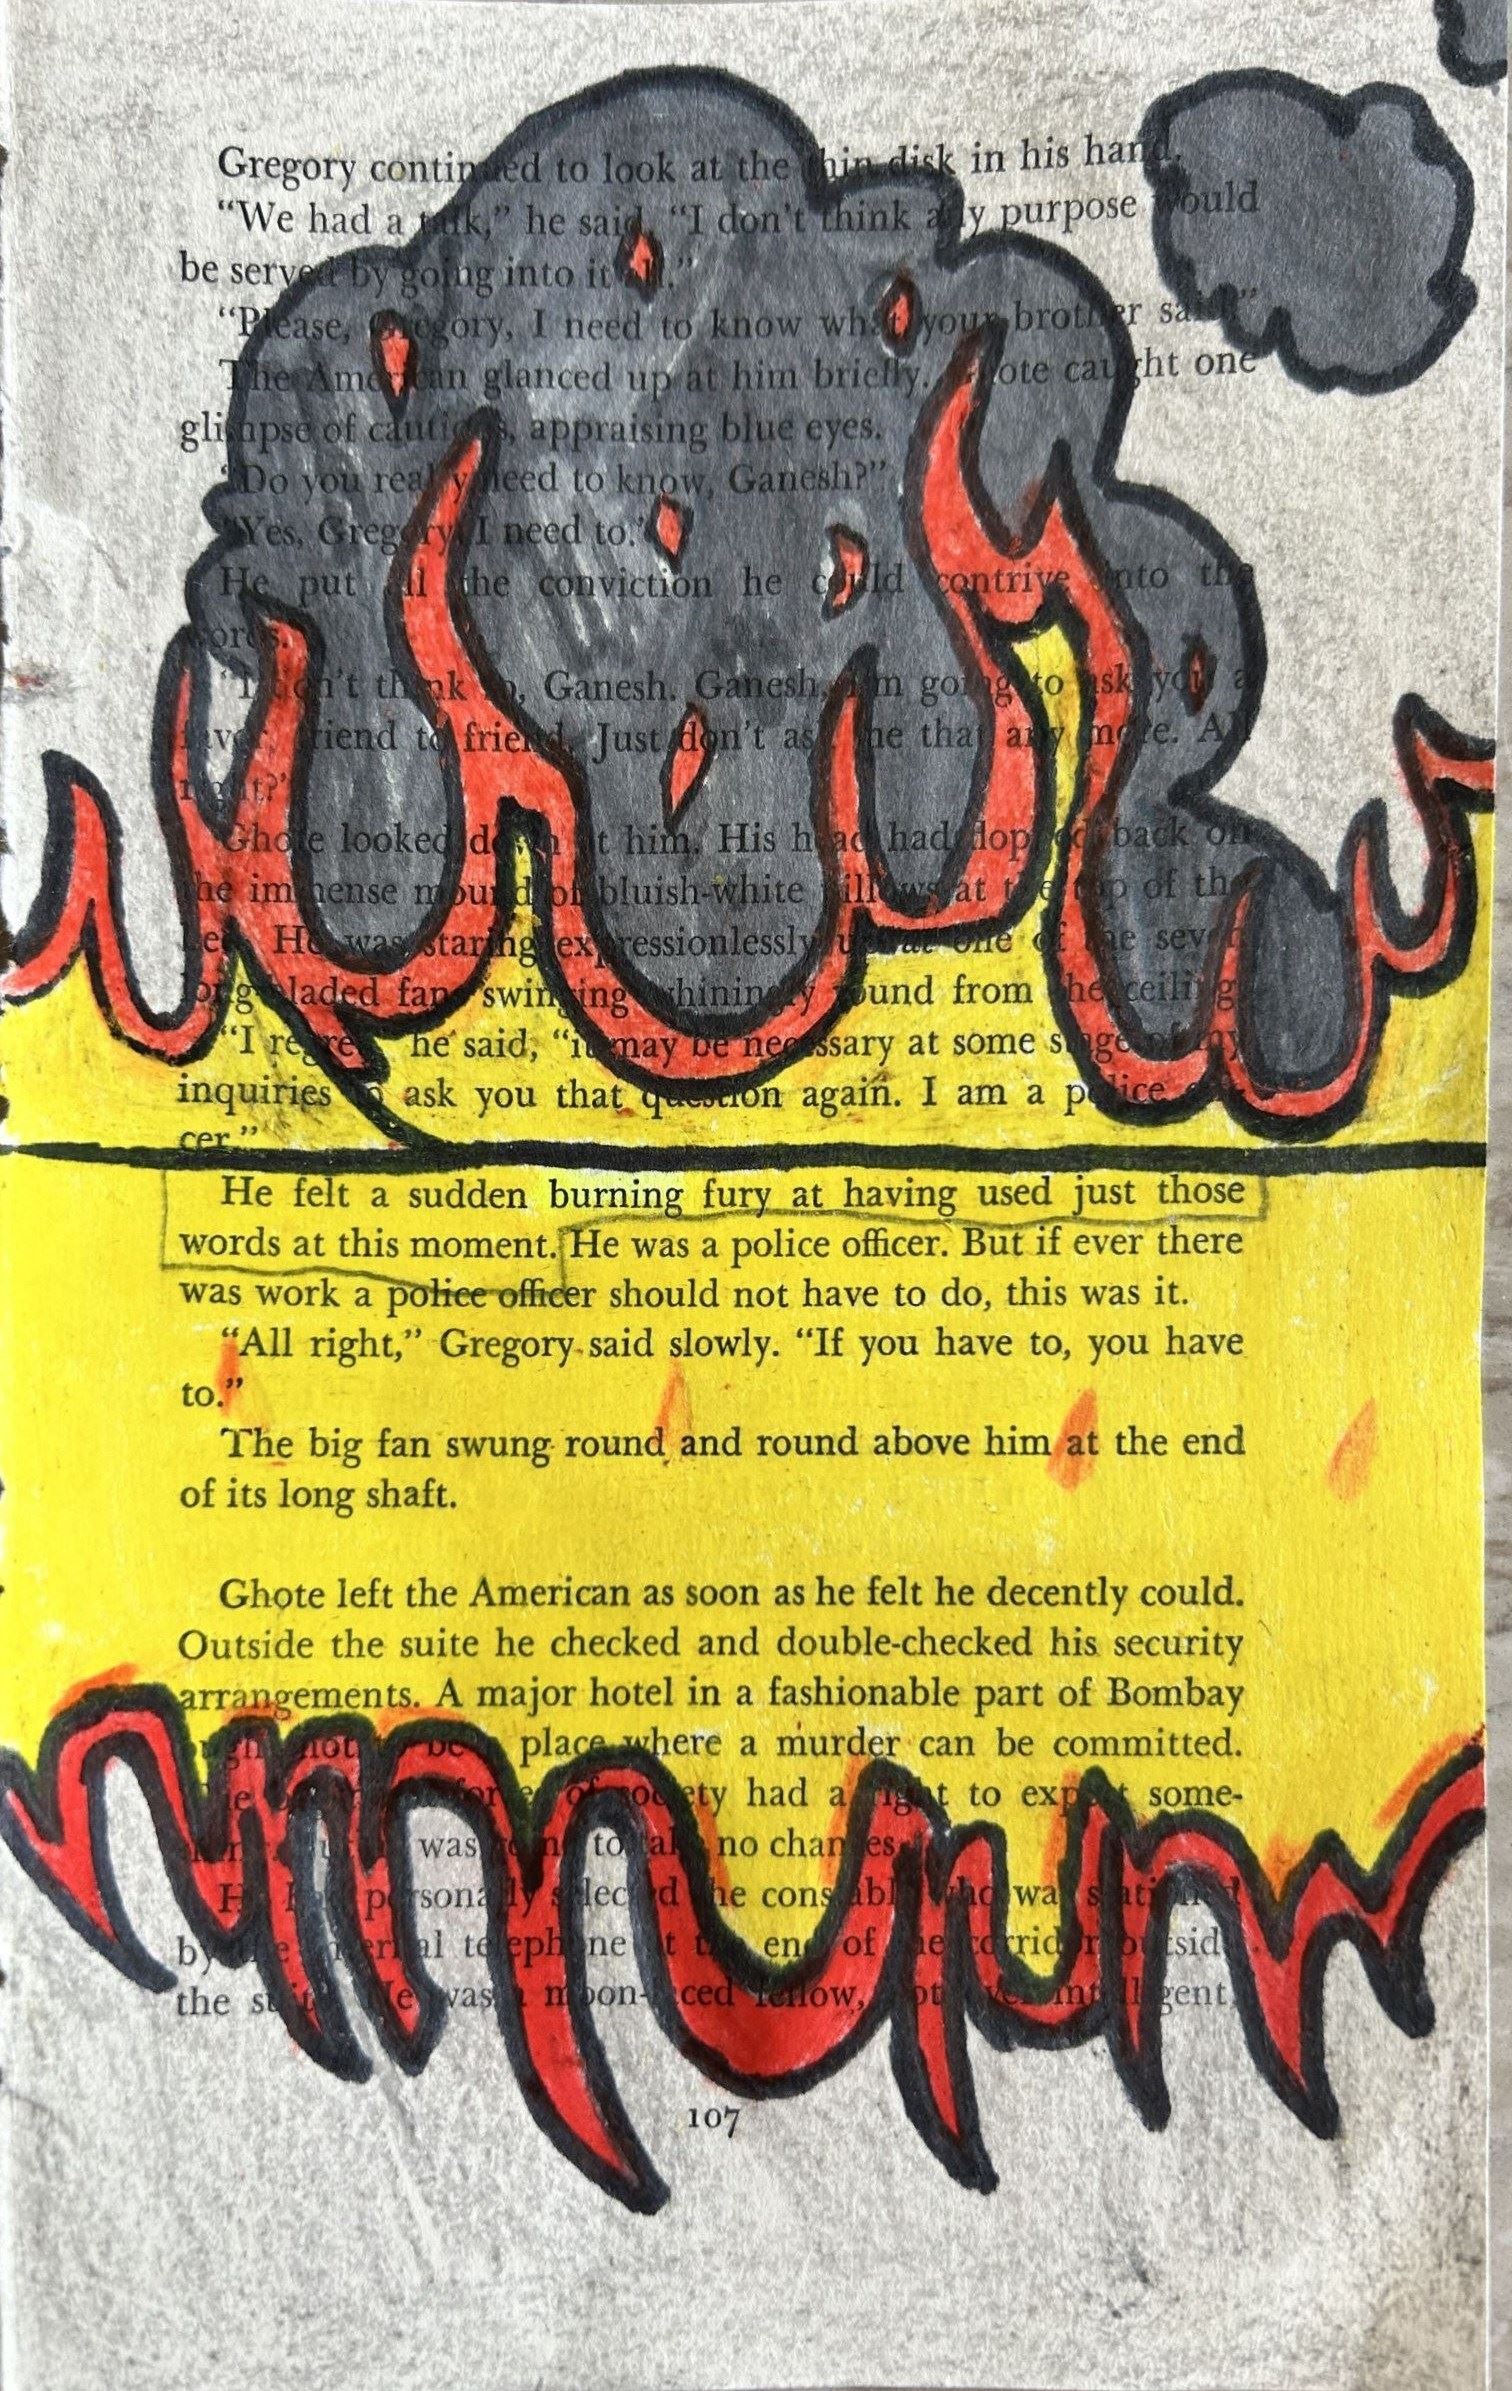 Gregory continued to look at the thin disk in his hand.
“We had a talk,” he said. “I don't think any purpose would
be served by going into it all.”
“Please, Gregory, I need to know what your brother said.”
The American glanced up at him briefly. Ghote caught one
glimpse of cautious, appraising blue eyes.
“Do you really need to know, Ganesh?”
“Yes, Gregory, I need to.”
He put all the conviction he could contrive into the
words.
“I don't think so, Ganesh. Ganesh, I'm going to ask you a
favor, friend to friend. Just don't ask me that any more. All
right?”
Ghote looked down at him. His head had flopped back on
the immense mound of bluish-white pillows at the top of the
bed. He was staring expressionlessly up at one of the seven
long-bladed fans swinging whiningly round from the ceiling.
“I regret,” he said, “it may be necessary at some stage of my
inquiries to ask you that question again. I am a police offi-
cer.”
He felt a sudden burning fury at having used just those
words at this moment. He was a police officer. But if ever there
was work a police officer should not have to do, this was it.
“All right,” Gregory said slowly. “If you have to, you have
to.”
The big fan swung round and round above him at the end
of its long shaft.
Ghote left the American as soon as he felt he decently could.
Outside the suite he checked and double-checked his security
arrangements. A major hotel in a fashionable part of Bombay
ought not to be a place where a murder can be committed.
The of society had a right to expect some-
was going to take no chances.
He had personally selected the constable who was stationed
by the internal telephone at the end of the corridor outside
the suite. He was a moon-faced fellow, not very intelligent,
107